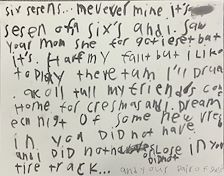 six serens... mevever mine it's
seren ofn six's and i. saw
your mom she for got ieset bat
it's. Half my fallt but i like
to play there tam i'll
a coll tall my friends con
Home for cresmas and. Dream
ech nigt of some new
in. you did not have
and i Did not lose in you
tire track... and your